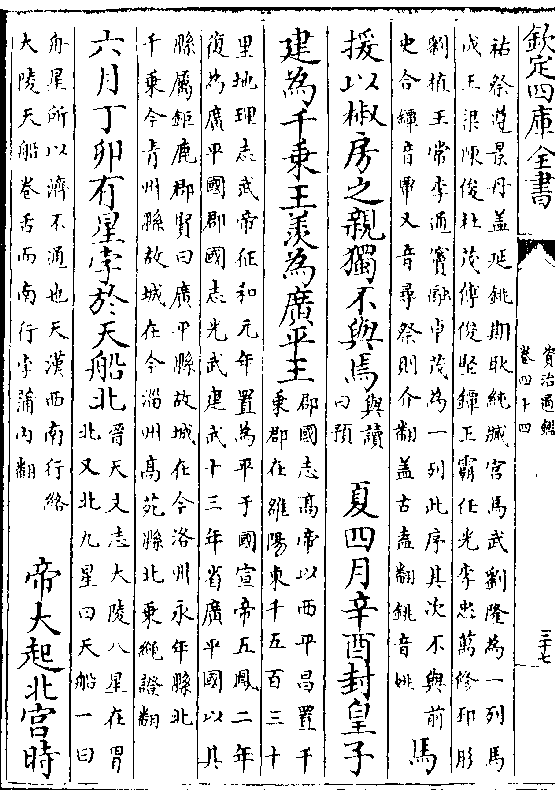 欽定四庫全書
資治通鑑
卷四十四
三十七
祐祭遵景丹蓋延銚期耿純臧宮馬武劉隆為一列馬
成王梁陳俊杜茂傅俊堅鐔王霸任光李忠萬修邳彤
劉植王常李通竇融卓茂為一列此序其次不與前
史合鐔音覃又音尋祭則介翻蓋古盍翻銚音姚
馬
援以椒房之親獨不與焉
與讀
曰預
夏四月辛酉封皇子
建為千乘王羨為廣平王
郡國志高帝以西平昌置千
乘郡在雒陽東千五百三十
里地理志武帝征和元年置為平于國宣帝五鳳二年
復為廣平國郡國志光武建武十三年省廣平國以其
縣屬鉅鹿郡賢曰廣平縣故城在今洺州永年縣北
千乘今青州縣故城在今淄州高苑縣北乘繩證翻
六月丁卯有星孛於天船北
晉天文志大陵八星在胃
北又北九星曰天船一曰
舟星所以濟不通也天漢西南行絡
大陵天船卷舌而南行孛蒲內翻
帝大起北宮時